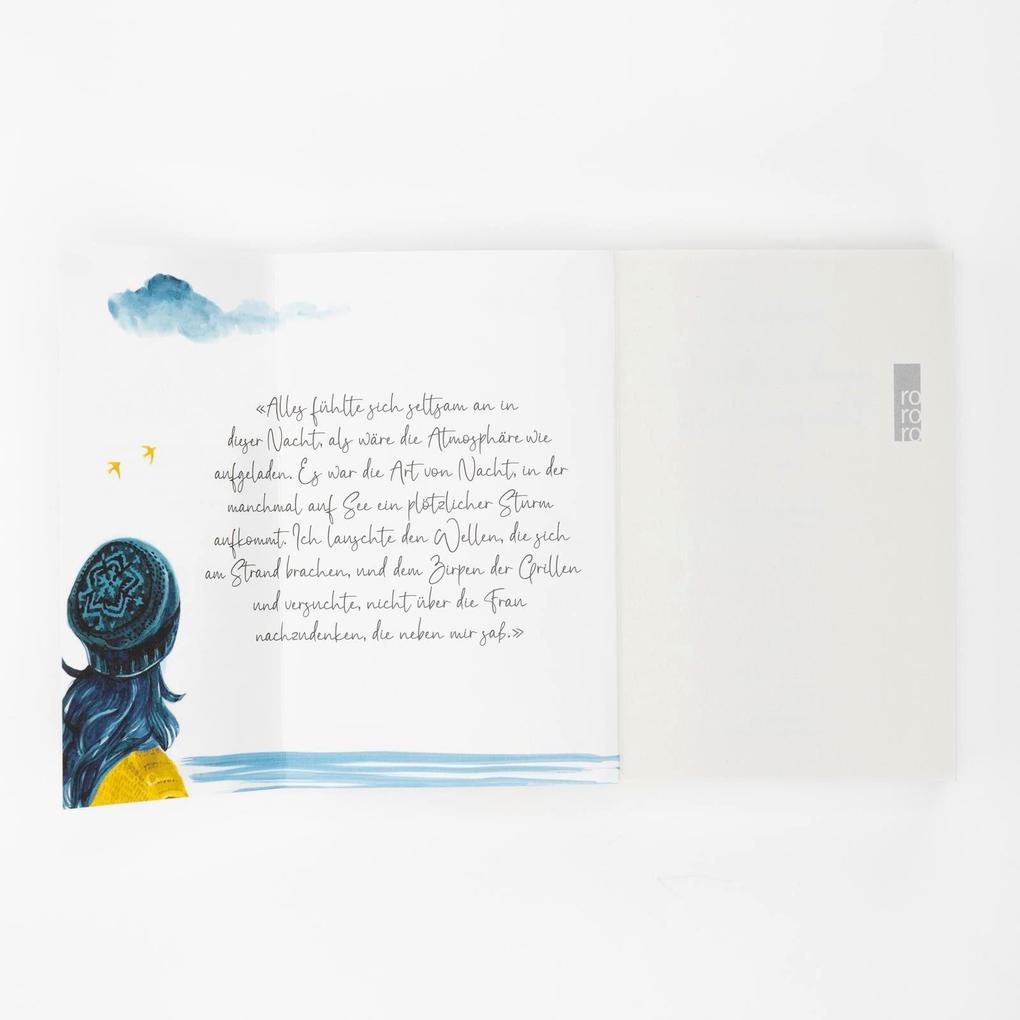 «Alles fühlte sich seltsam an in
dieser Nacht, als wäre die Atmosphäre wie
aufgeladen. Es war die Art von Nacht, in der
manchmal auf See ein plötzlicher Sturm
aufkommt. Ich lauschte den Wellen, die sich
am Strand brachen, und dem Zirpen der Grillen
und versuchte, nicht über die Frau
nachzudenken, die neben mir saß.»
ro
ro
ro